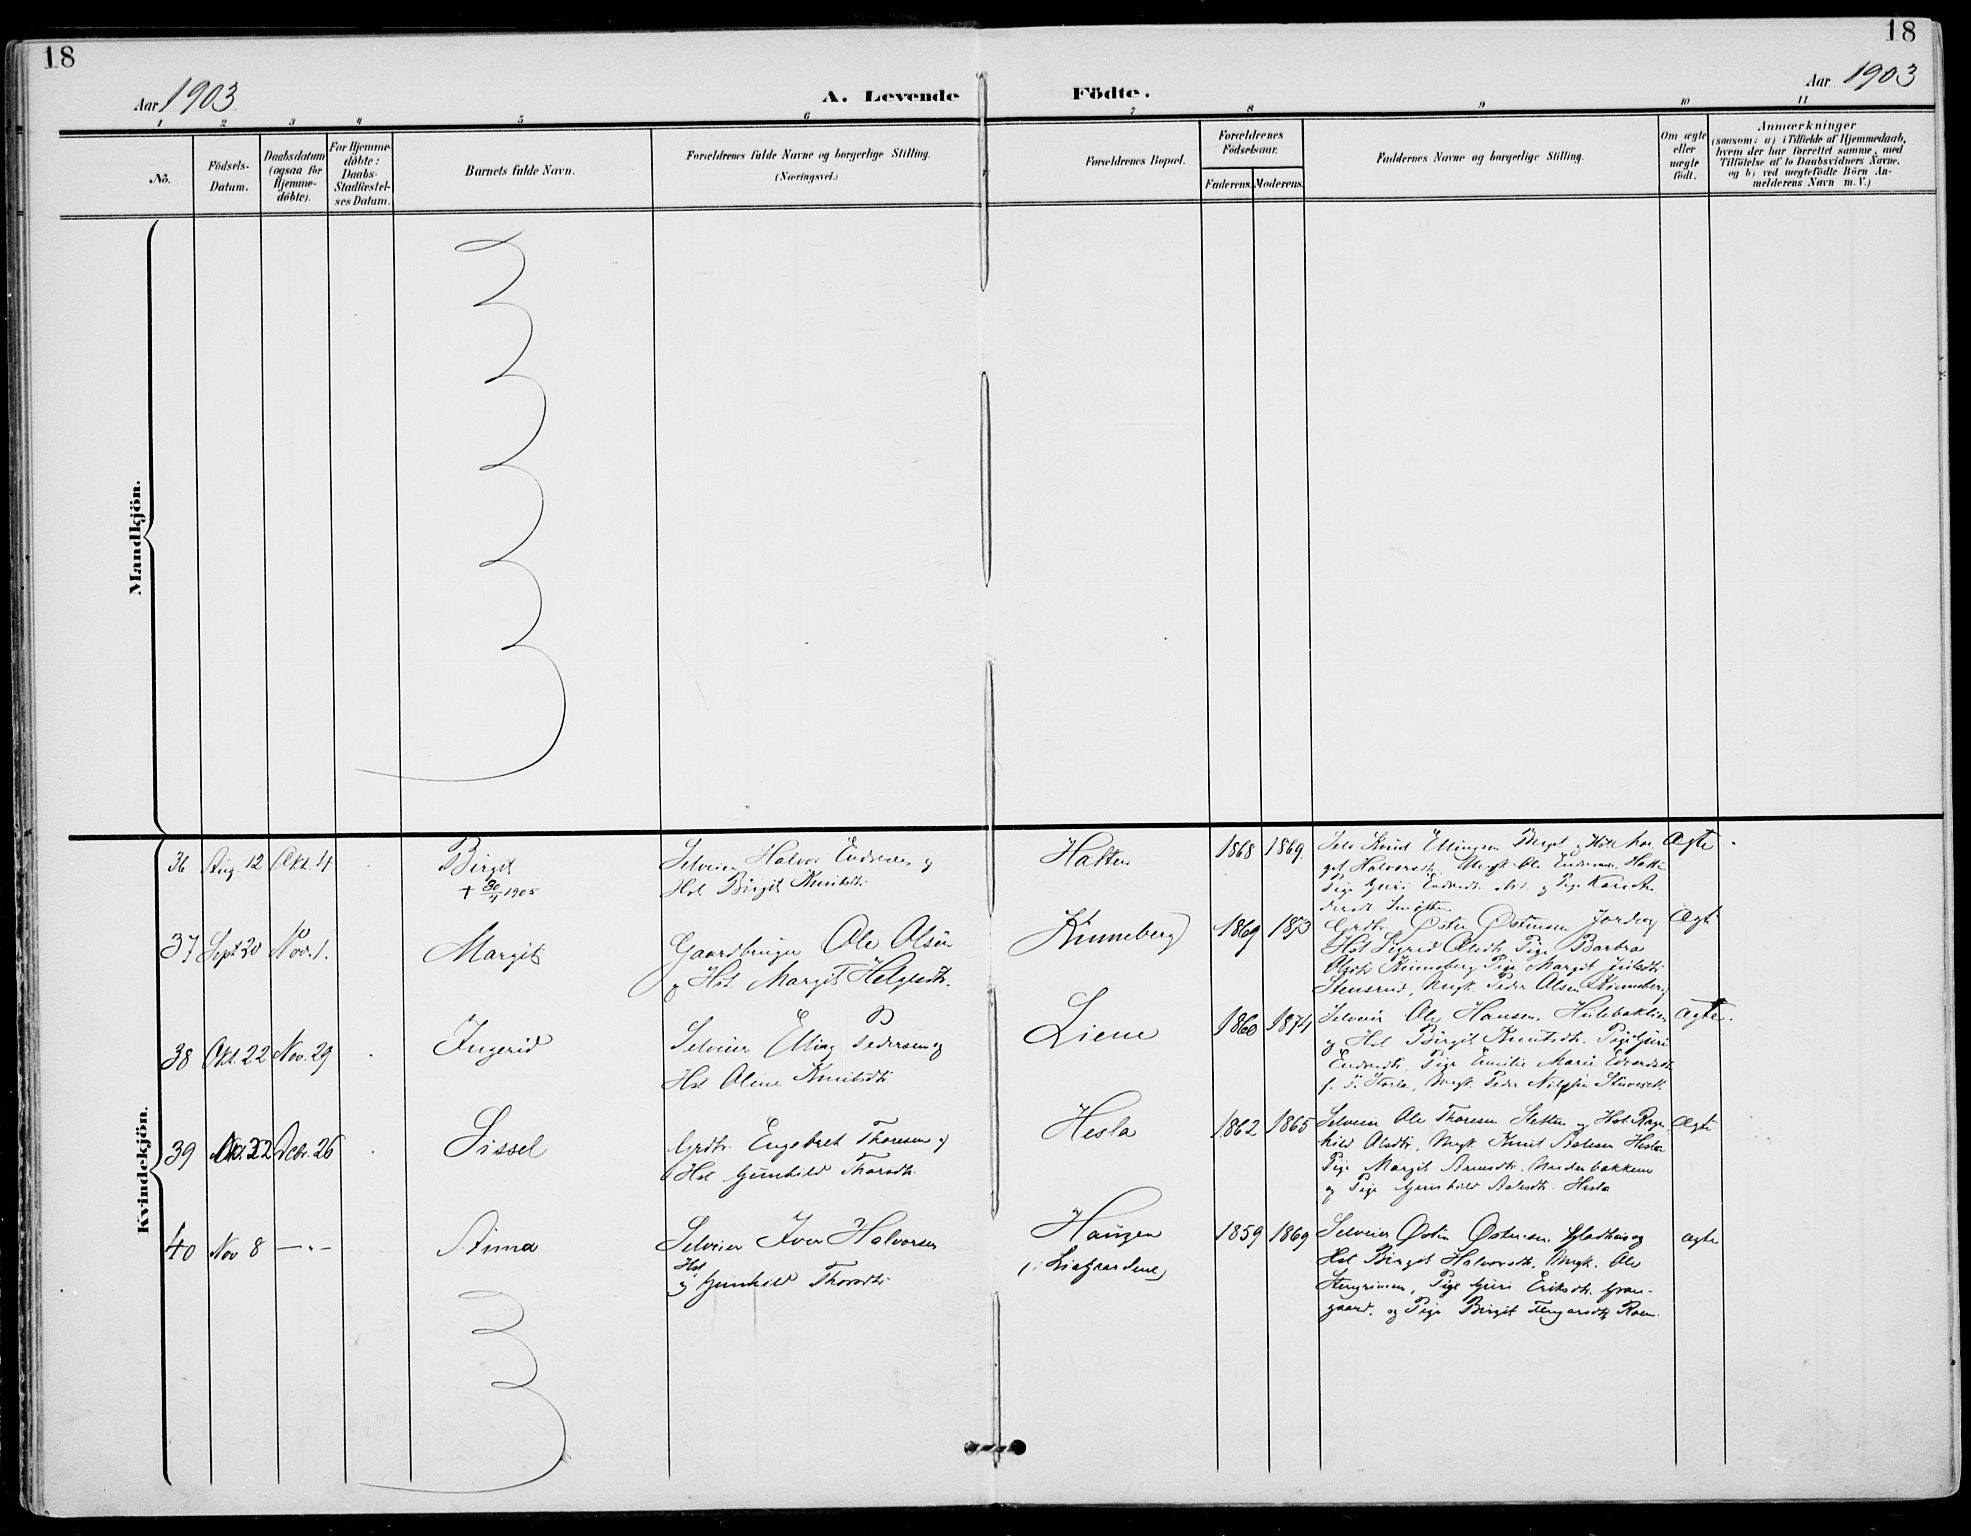 18
18
Aar 1903
A. Levende Födte.
Aar 1903
1 2 3 4 5 6 7 8 9 10 11
No.
Födsels-
Datum.
Daabsdatum
(ogsaa for
Hjemme-
döbte).
For Hjemme-
döbte:
Daabs-
Stadfæstel-
ses Datum.
Barnets fulde Navn.
Forældrenes fulde Navne og borgerlige Stilling.
(Næringsvei.)
Forældrenes Bopæl.
Forældrenes
Födselsaar.
Faderens. Moderens.
Faddernes Navne og borgerlige Stilling.
Om ægte
eller
uægte
födt.
Anmærkninger
(saasom: a) i Tilfælde af Hjemmedaab,
hvem der har forrettet samme, med
Tilföielse af to Daabsvidners Navne,
og b) ved uægtefödte Börn An-
melderens Navn m. V.)
Mandkjön.
Kvindekjön.
36 Aug. 12 Okt. 4
Birgit
+ 30/4 1905
Selveier Halvor Endresen og
Hst. Birgit Knutsdtr.
Hatten
1868 1869.
Ægte
37 Sept 20 Nov. 1.
Margit
Gaardbruger Ole Olsen
og Hst. Margit Helgesdtr.
Kinneberg
1869 1873
Hst Sigrid Olsdtr. Pige Barbra
Olsdtr Kinneberg Pige Margit
Stensrud, Ungk. Peder Olsen Kinneberg
Ægte
38 Okt. 22 Nov. 29
Ingerid
Selveier Elling Pedersen og
Hst Oline Knutsdtr
Liene
1860 1874
Selveier Ole Hansen, Hulebakken
og Hst Birgit Knutsdtr. Pige Guri
Endresdtr, Pige Emilie Marie
Ungk. Peder Nilssen
Ægte.
39 22 Debr. 26
Sissel
Grdbr. Engebret Thoresen og
Hst Gunhild Thorsdtr.
Hesla
1862 1865
Selveier Ole Thoresen Sletten og Hst Ragn-
hild Olsdtr, Ungk. Knut Hesla
Pige Margit Arnesdtr. Nordenbakken
og Pige Gunhild Hesla
Ægte
40 Nov 8 — " —
Anna
Selveier Iver Halvorsen
Hst
og Gunhild Thorsdtr
Haugen
1859 1869
Selveier Østen Østensen og
Hst Birgit Halvorsdtr. Ungk. Ole
Pige Guri Eriksdtr. Gran-
gaard, og Pige Birgit
ægte